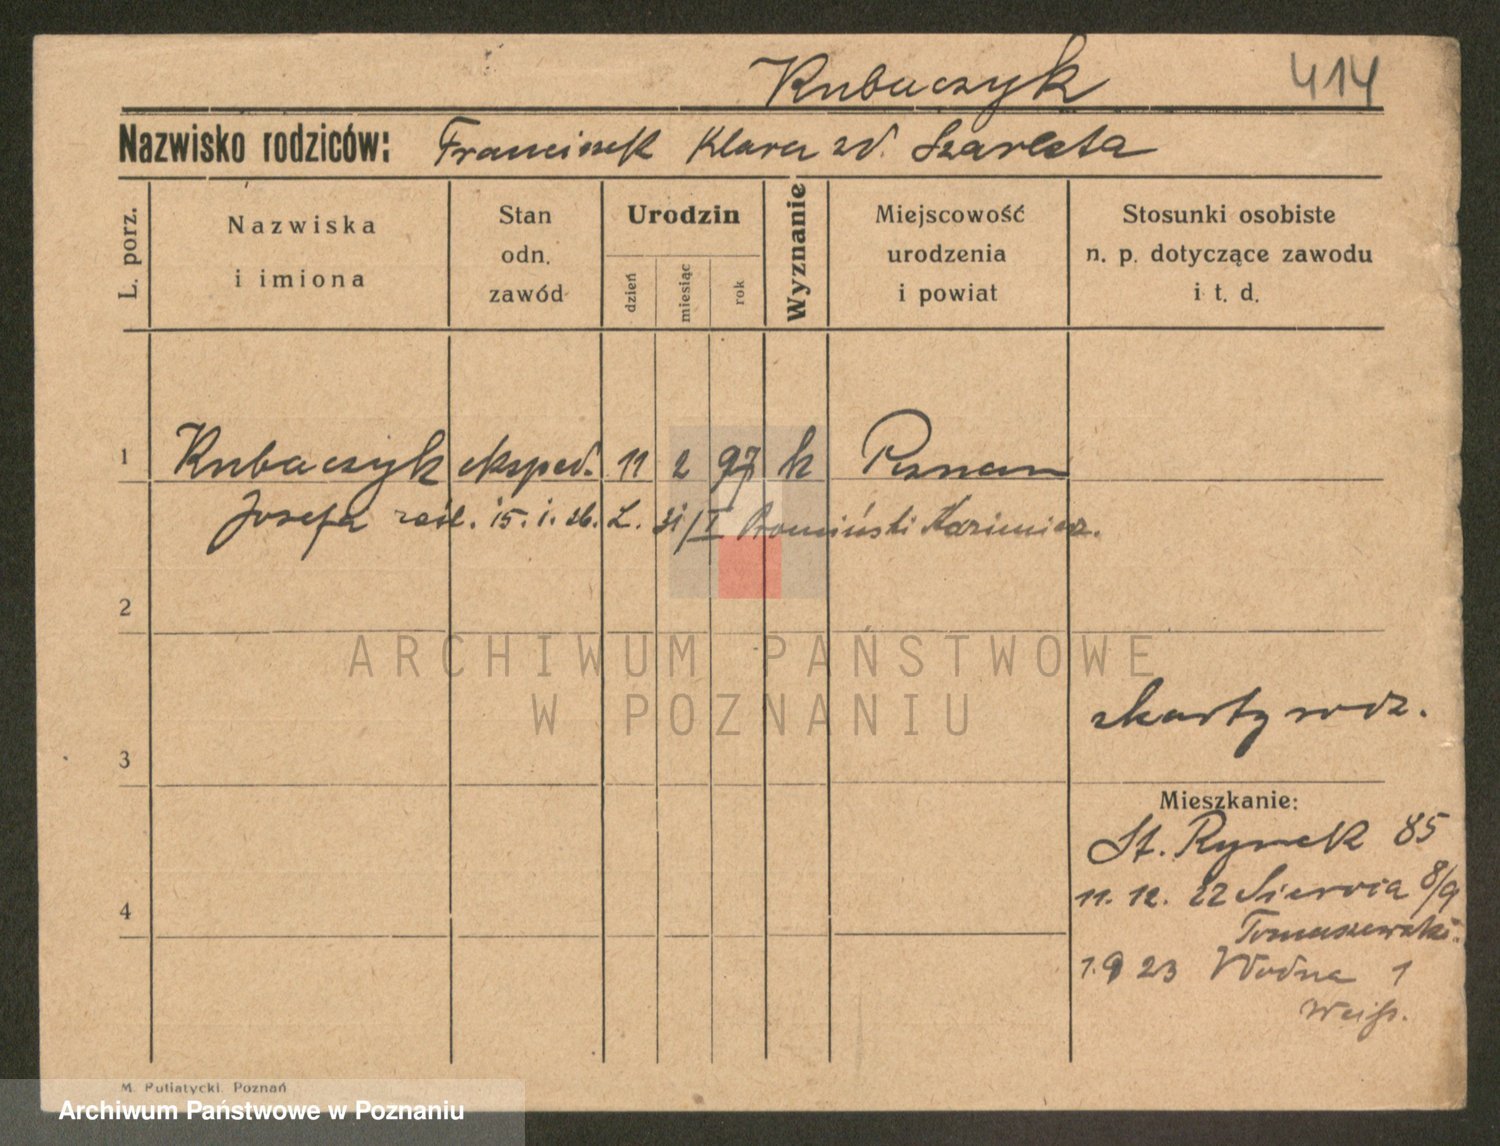 Kubaczyk 414
Nazwisko rodziców: Franciszek Klara zd. Szarleta
L. porz.
Nazwiska
i imiona
Stan
odn.
zawód
Urodzin
dzień
miesiąc
rok
Wyznanie
Miejscowość
urodzenia
i powiat
Stosunki osobiste
n. p. dotyczące zawodu
i t. d.
1 Kubaczyk eksped. 11 2 97 k Poznan
Josefa zaśl. 15. 1. 26. L. 31/I Kazimierz.
2
ARCHIWUM PAŃSTWOWE
W POZNANIU
z karty rodz.
3
Mieszkanie:
St. Rynek 85
11. 12. 22 Sieroca 8/9
4
Tomaszewski.
1.9 23 Wodna 1
Weiß.
M. Putiatycki, Poznań
Archiwum Państwowe w Poznaniu